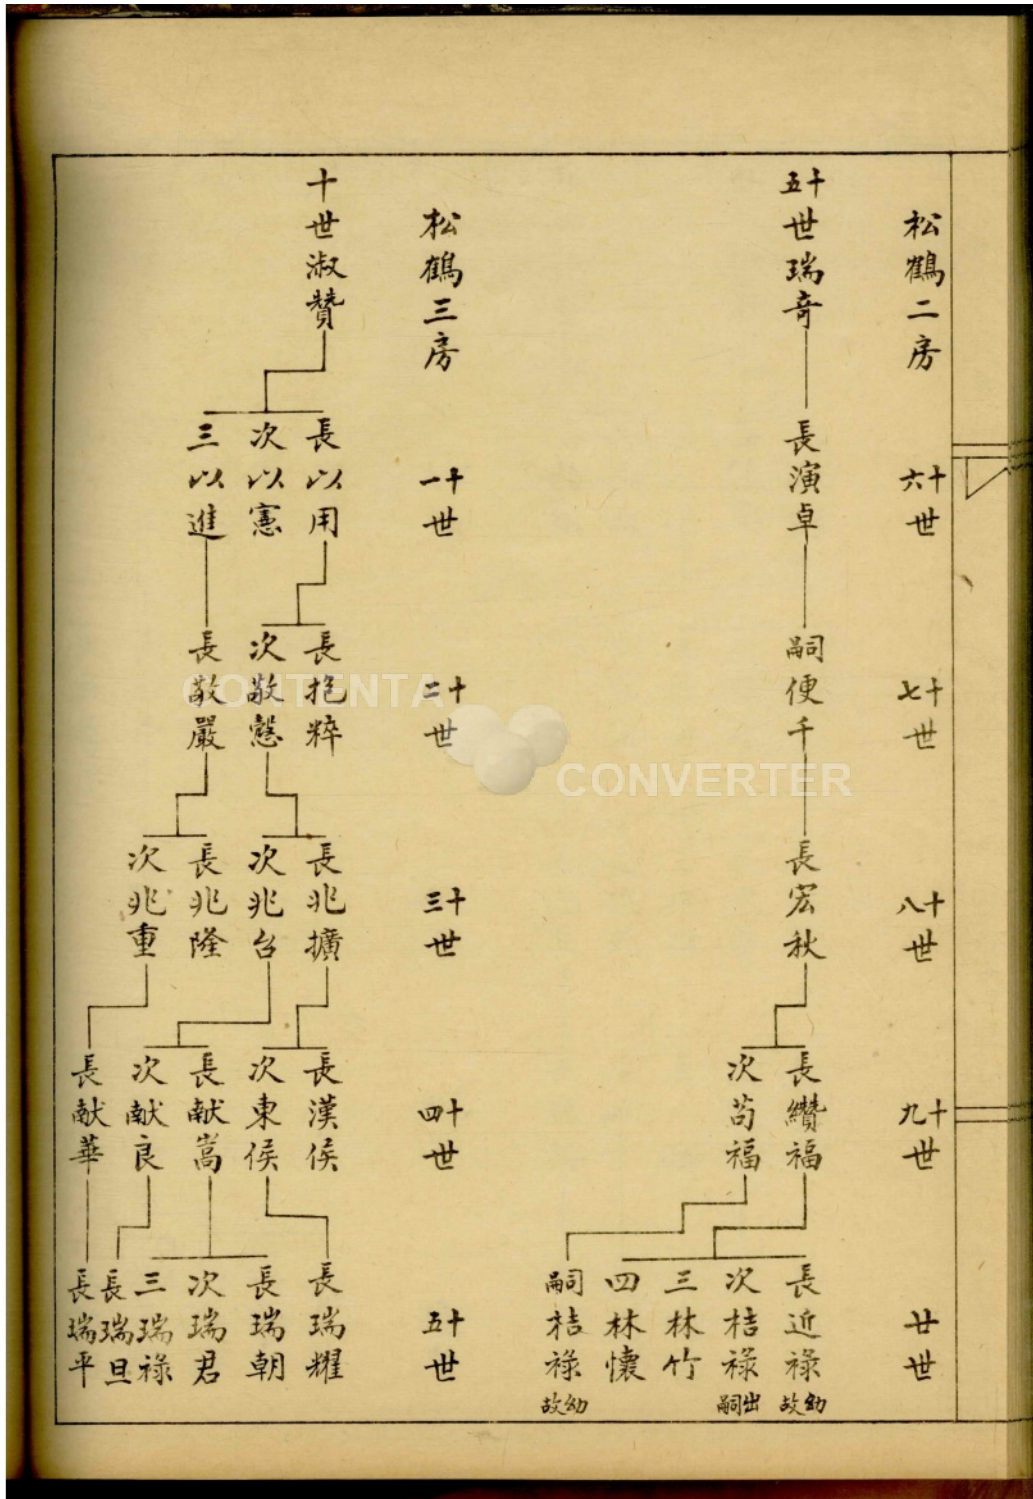 松鶴二房
十六世
十七世
十八世
十九世
廿世
十五世瑞奇
長演卓
嗣便千
長宏秋
長纘福
次苟福
長近祿幼故
次桔祿出嗣
三林竹
四林懷
嗣桔祿幼故
松鶴三房
十一世
十二世
十三世
十四世
十五世
十世淑贊
長以用
次以憲
三以進
長抱粹
次敬慤
長敬嚴
長兆擴
次兆台
長兆隆
次兆重
長漢侯
次東侯
長献嵩
次献良
長献華
長瑞耀
長瑞朝
次瑞君
三瑞祿
長瑞旦
長瑞平
CONTENTA
CONVERTER